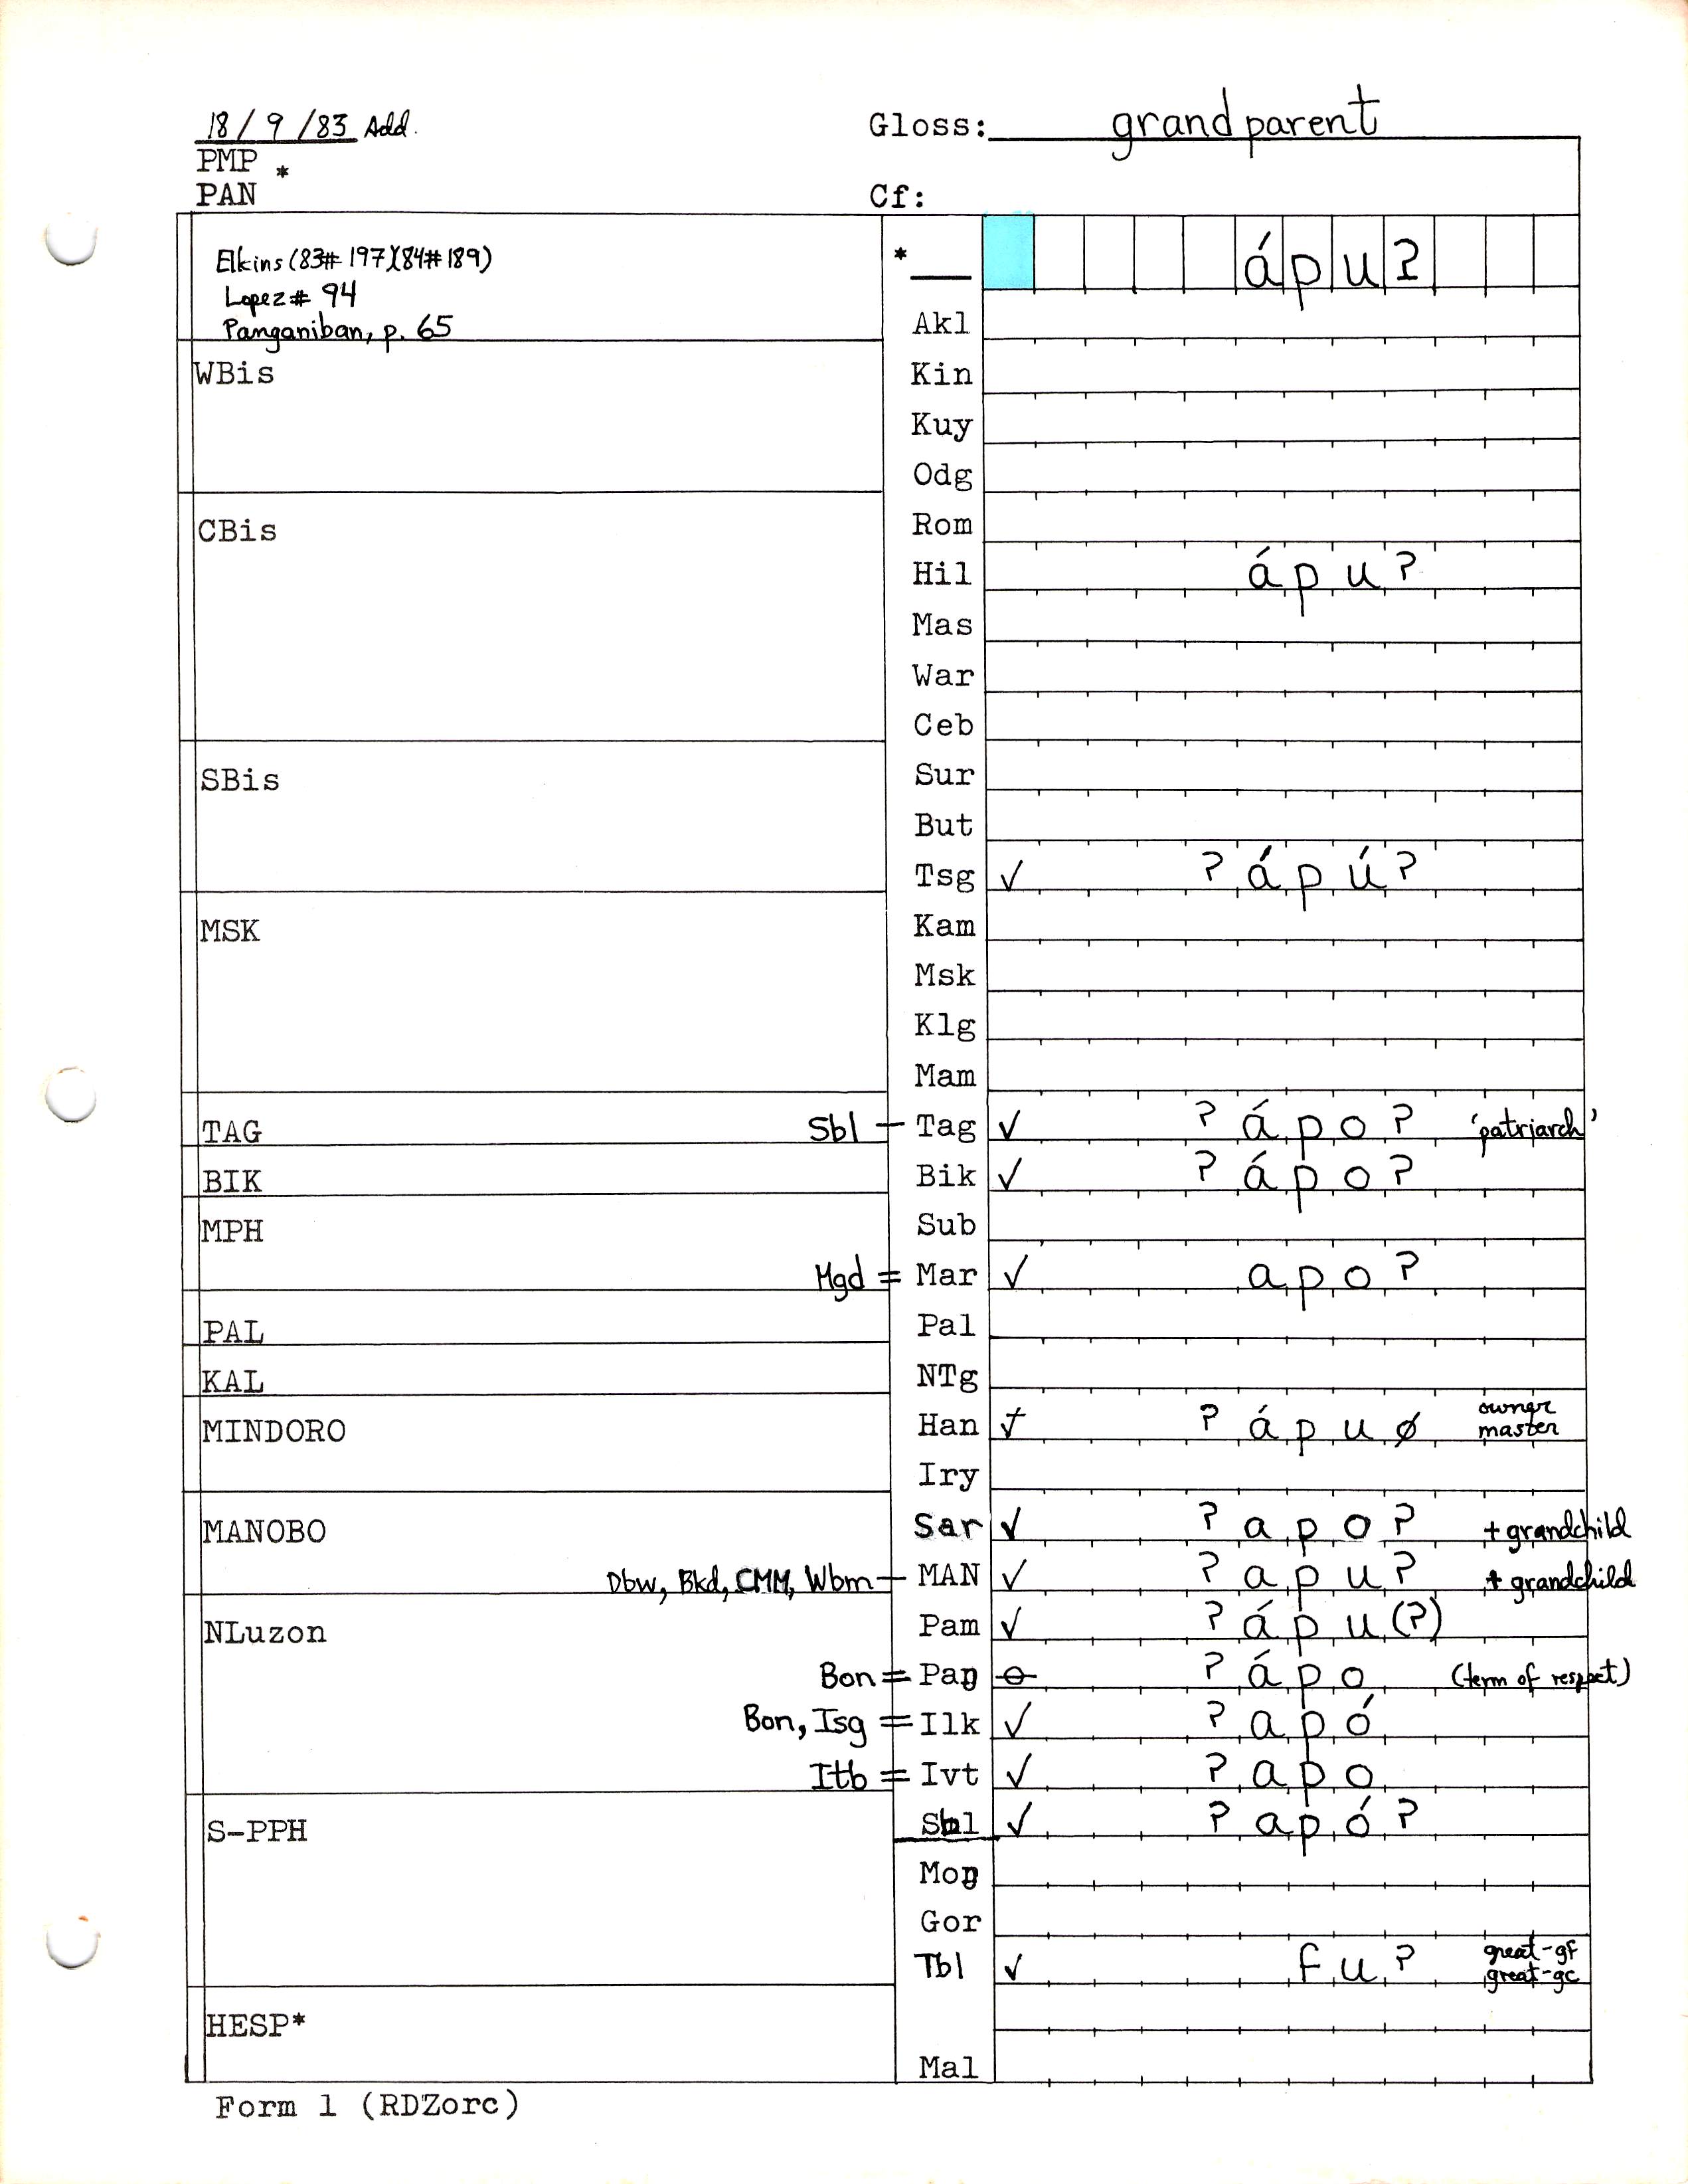 18/9/83 Add.
Gloss: grandparent
PMP *
PAN
Cf:
Elkins (83# 197)(84# 189)
Lopez # 94
Panganiban, p. 65
* ápuʔ
Akl
WBis
Kin
Kuy
Odg
CBis
Rom
Hil ápuʔ
Mas
War
Ceb
SBis
Sur
But
Tsg ✓ ʔápúʔ
MSK
Kam
Msk
Klg
Mam
TAG Sbl – Tag ✓ ʔápoʔ 'patriarch'
BIK Bik ✓ ʔápoʔ
MPH
Sub
Mgd = Mar ✓ apoʔ
PAL Pal
KAL NTg
MINDORO Han ✓ ʔápuø owner master
Iry
MANOBO Sar ✓ ʔapoʔ + grandchild
Dbw, Bkd, CMM, Wbm – MAN ✓ ʔapuʔ + grandchild
NLuzon Pam ✓ ʔápu(ʔ)
Bon = Paŋ ʔápo (term of respect)
Bon, Isg = Ilk ✓ ʔapó
Itb = Ivt ✓ ʔapo
S-PPH Sbl ✓ ʔapóʔ
Moŋ
Gor
Tbl ✓ fuʔ great-gf great-gc
HESP*
Mal
Form 1 (RDZorc)